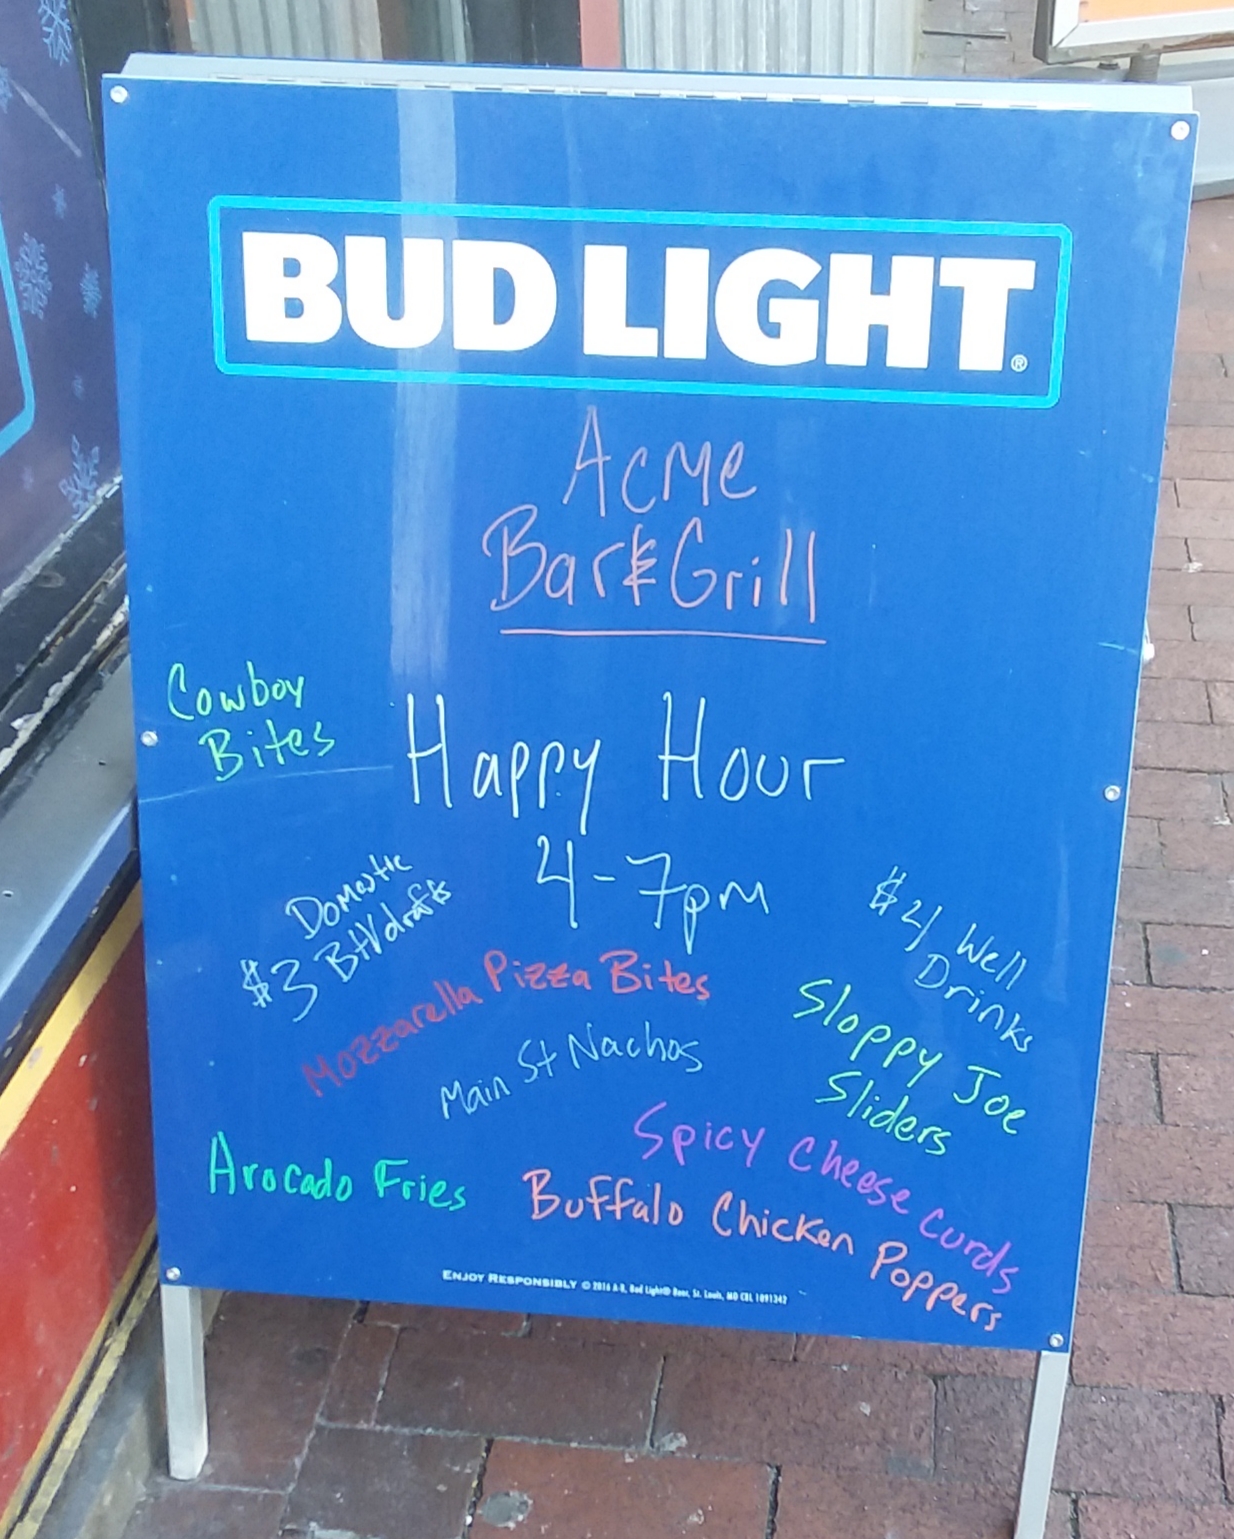 BUD LIGHT®
Acme
Bar & Grill
Cowboy
Bites
Happy Hour
4-7pm
Domestic
$3 Btl/drafts
$4 Well
Drinks
Mozzarella Pizza Bites
Main St Nachos
Sloppy Joe
Sliders
Spicy Cheese Curds
Avocado Fries
Buffalo Chicken Poppers
ENJOY RESPONSIBLY © 2016 A-B, Bud Light® Beer, St. Louis, MO